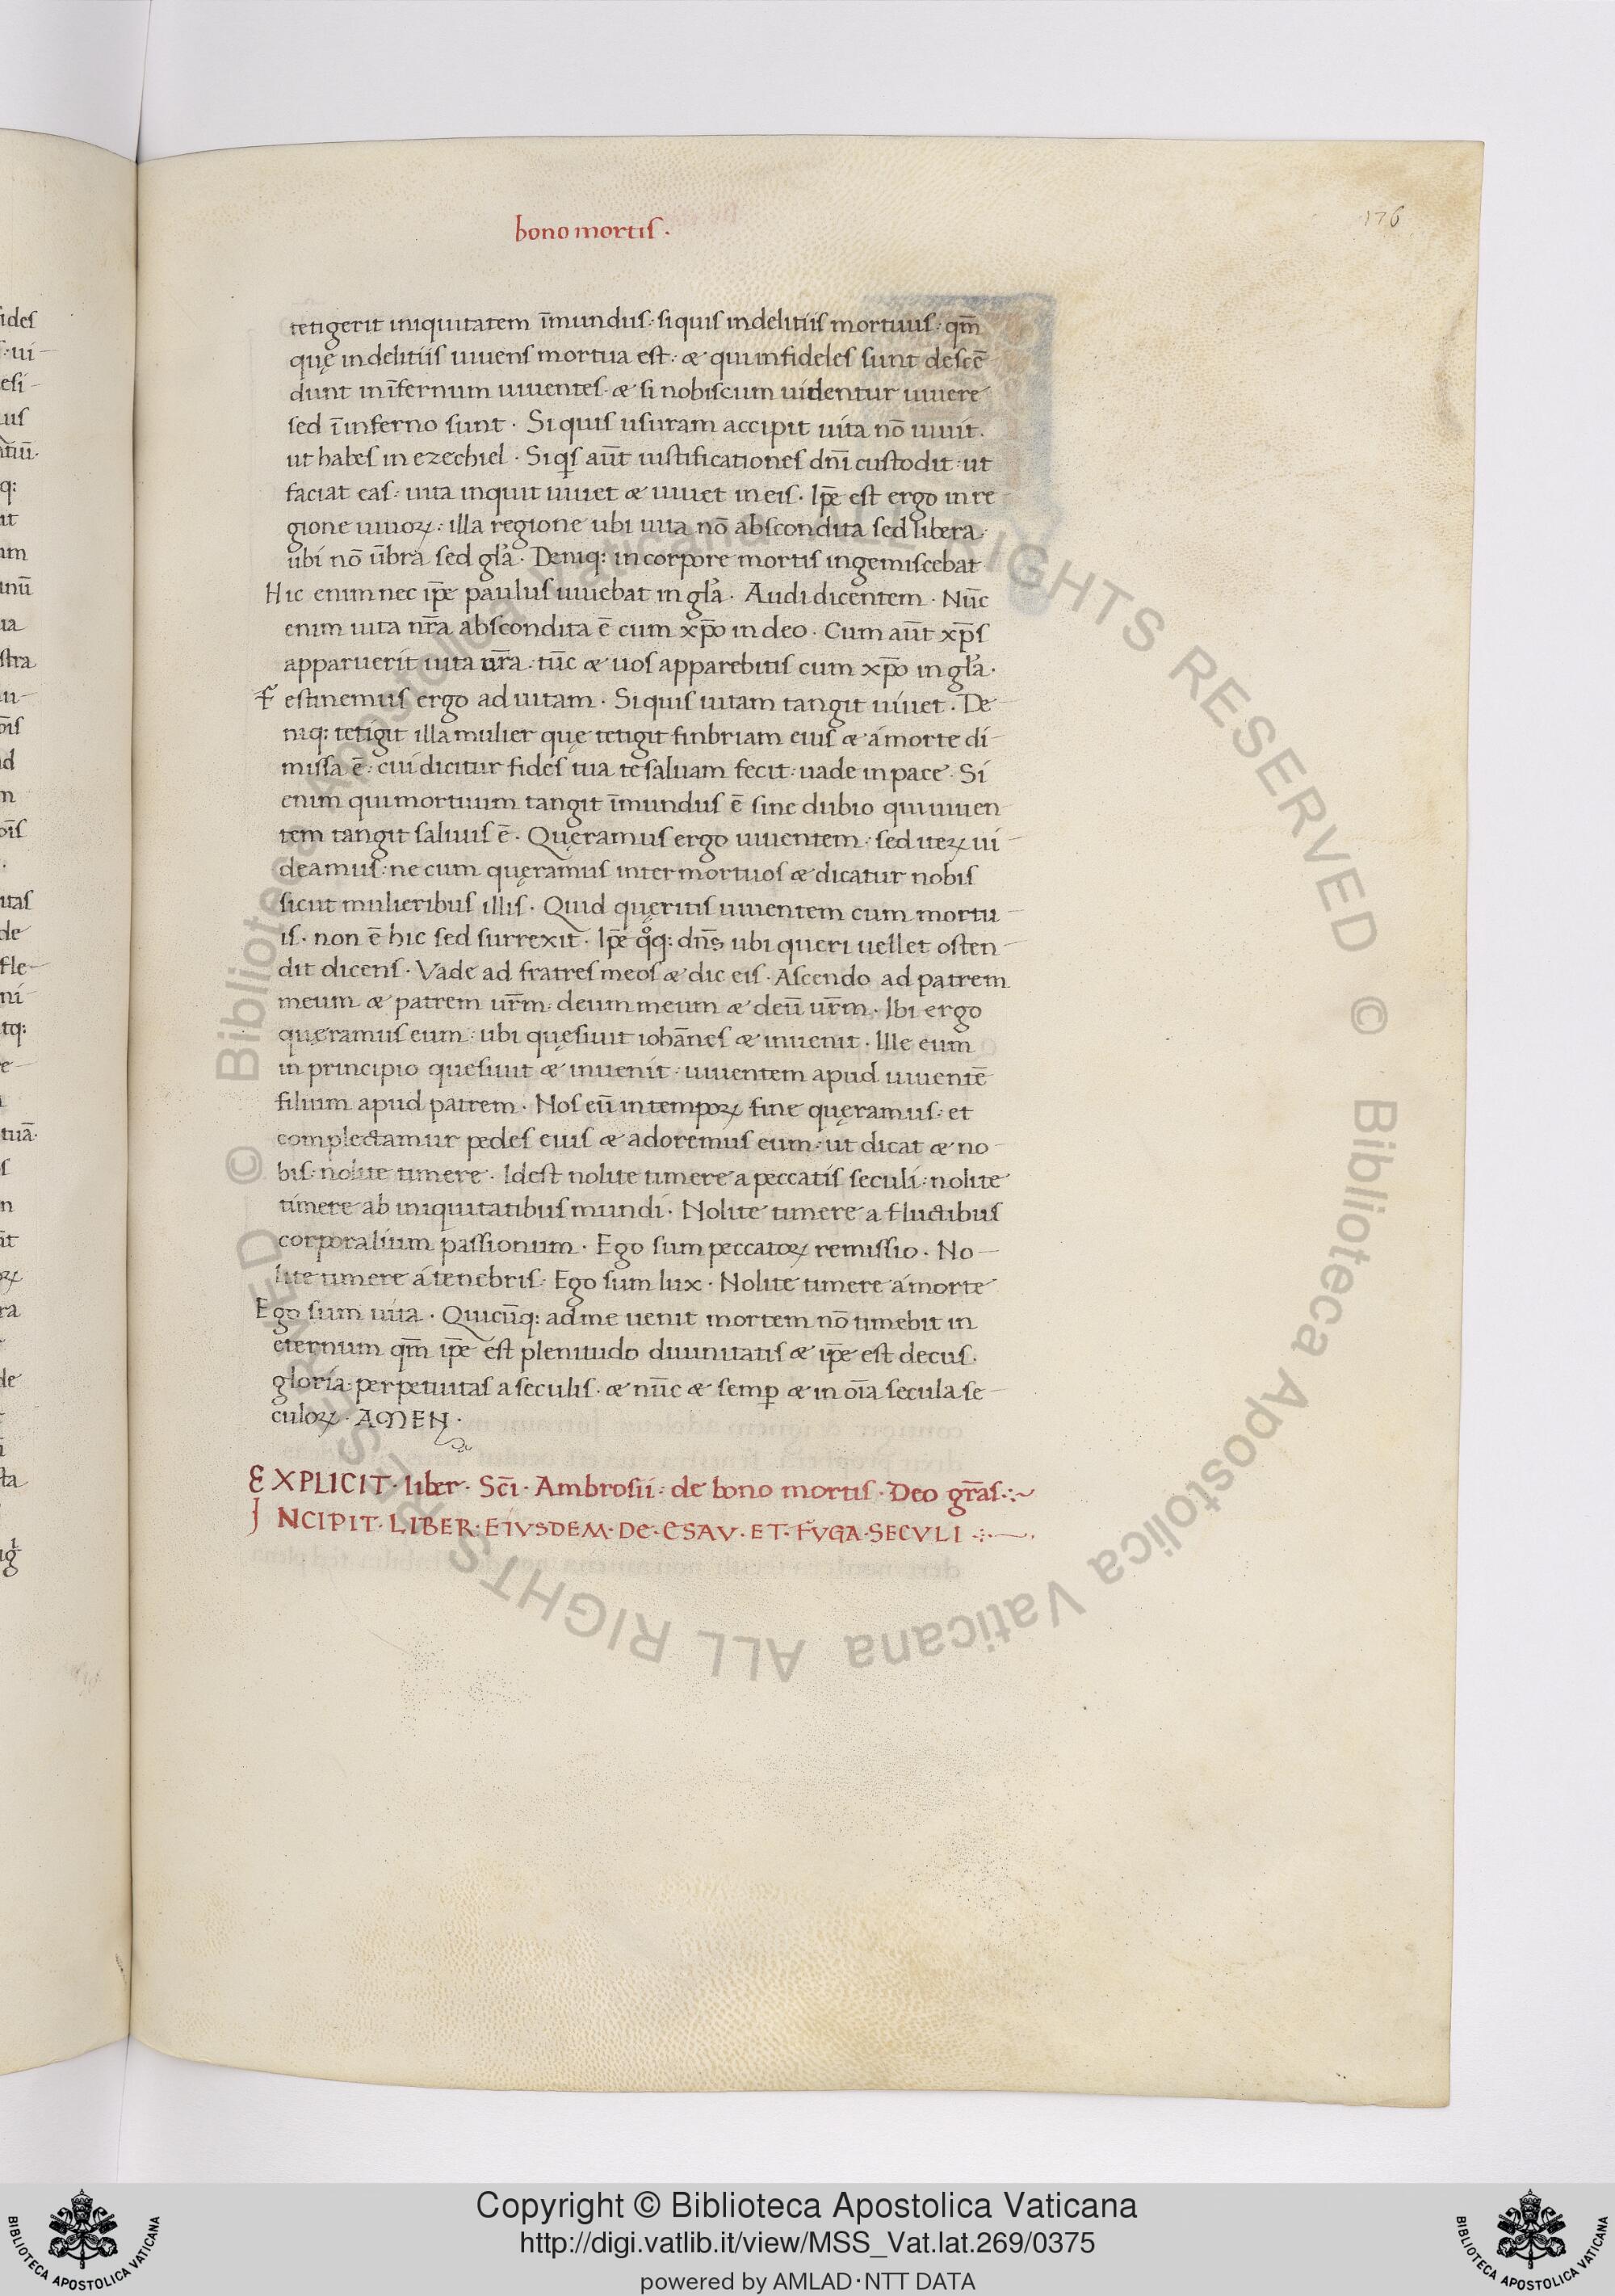 bono mortis ·
176
tetigerit iniquitatem īmundus : si quis in delitiis mortuus : qm̄
quę in delitiis uiuens mortua est : & qui infideles sunt descē
dunt in īfernum uiuentes · & si nobiscum uidentur uiuere
sed ī inferno sunt · Si quis usuram accipit uita nō uiuit ·
ut habes in ezechiel · Si qs aūt iustificationes dnī custodit · ut
faciat eas : uita inquit uiuet & uiuet in eis · Ipē est ergo in re
gione uiuoꝝ : illa regione ubi uita nō abscondita sed libera ·
ubi nō ūbra sed gła · Deniq: in corpore mortis ingemiscebat
Hic enim nec ipē paulus uiuebat in gła · Audi dicentem · Nūc
enim uita nr̄a abscondita ē cum xp̄o in deo · Cum aūt xp̄s
apparuerit uita ur̄a : tūc & uos apparebitis cum xp̄o in gła ·
Festinemus ergo ad uitam · Si quis uitam tangit uiuet · De
niq: tetigit illa mulier quę tetigit finbriam eius & á morte di
missa ē : cui dicitur fides tua te saluam fecit : uade in pace · Si
enim qui mortuum tangit īmundus ē sine dubio qui uiuen
tem tangit saluus ē · Quęramus ergo uiuentem : sed iteꝝ ui
deamus : ne cum quęramus inter mortuos & dicatur nobis
sicut mulieribus illis · Quid quęritis uiuentem cum mortu
is · non ē hic sed surrexit · Ipē qq: dn̄s ubi queri uellet osten
dit dicens · Vade ad fratres meos & dic eis · Ascendo ad patrem
meum & patrem ur̄m : deum meum & deū ur̄m · Ibi ergo
quęramus eum : ubi quęsiuit iohānes & inuenit · Ille eum
in principio quesiuit & inuenit : uiuentem apud uiuentē
filium apud patrem · Nos eū in tempoꝝ fine quęramus : et
complectamur pedes eius & adoremus eum : ut dicat & no
bis : nolite timere · Idest nolite timere a peccatis seculi : nolite
timere ab iniquitatibus mundi · Nolite timere a fluctibus
corporalium passionum · Ego sum peccatoꝝ remissio · No
lite timere á tenebris : Ego sum lux · Nolite timere á morte
Ego sum uita · Quicūq: ad me uenit mortem nō timebit in
eternum qm̄ ipē est plenitudo diuinitatis & ipē est decus ·
gloria : perpetuitas a seculis · & nūc & semꝑ & in oīa secula se
culoꝝ · AMEN ·
EXPLICIT · liber · Sc̄i · Ambrosii : de bono mortis · Deo gr̄as
INCIPIT · LIBER · EIUSDEM · DE · ESAV · ET · FVGA · SECVLI
© Biblioteca Apostolica Vaticana ALL RIGHTS RESERVED © Biblioteca Apostolica Vaticana ALL RIGHTS RESERVED
Copyright © Biblioteca Apostolica Vaticana
http://digi.vatlib.it/view/MSS_Vat.lat.269/0375
powered by AMLAD·NTT DATA
BIBLIOTECA APOSTOLICA VATICANA
BIBLIOTECA APOSTOLICA VATICANA